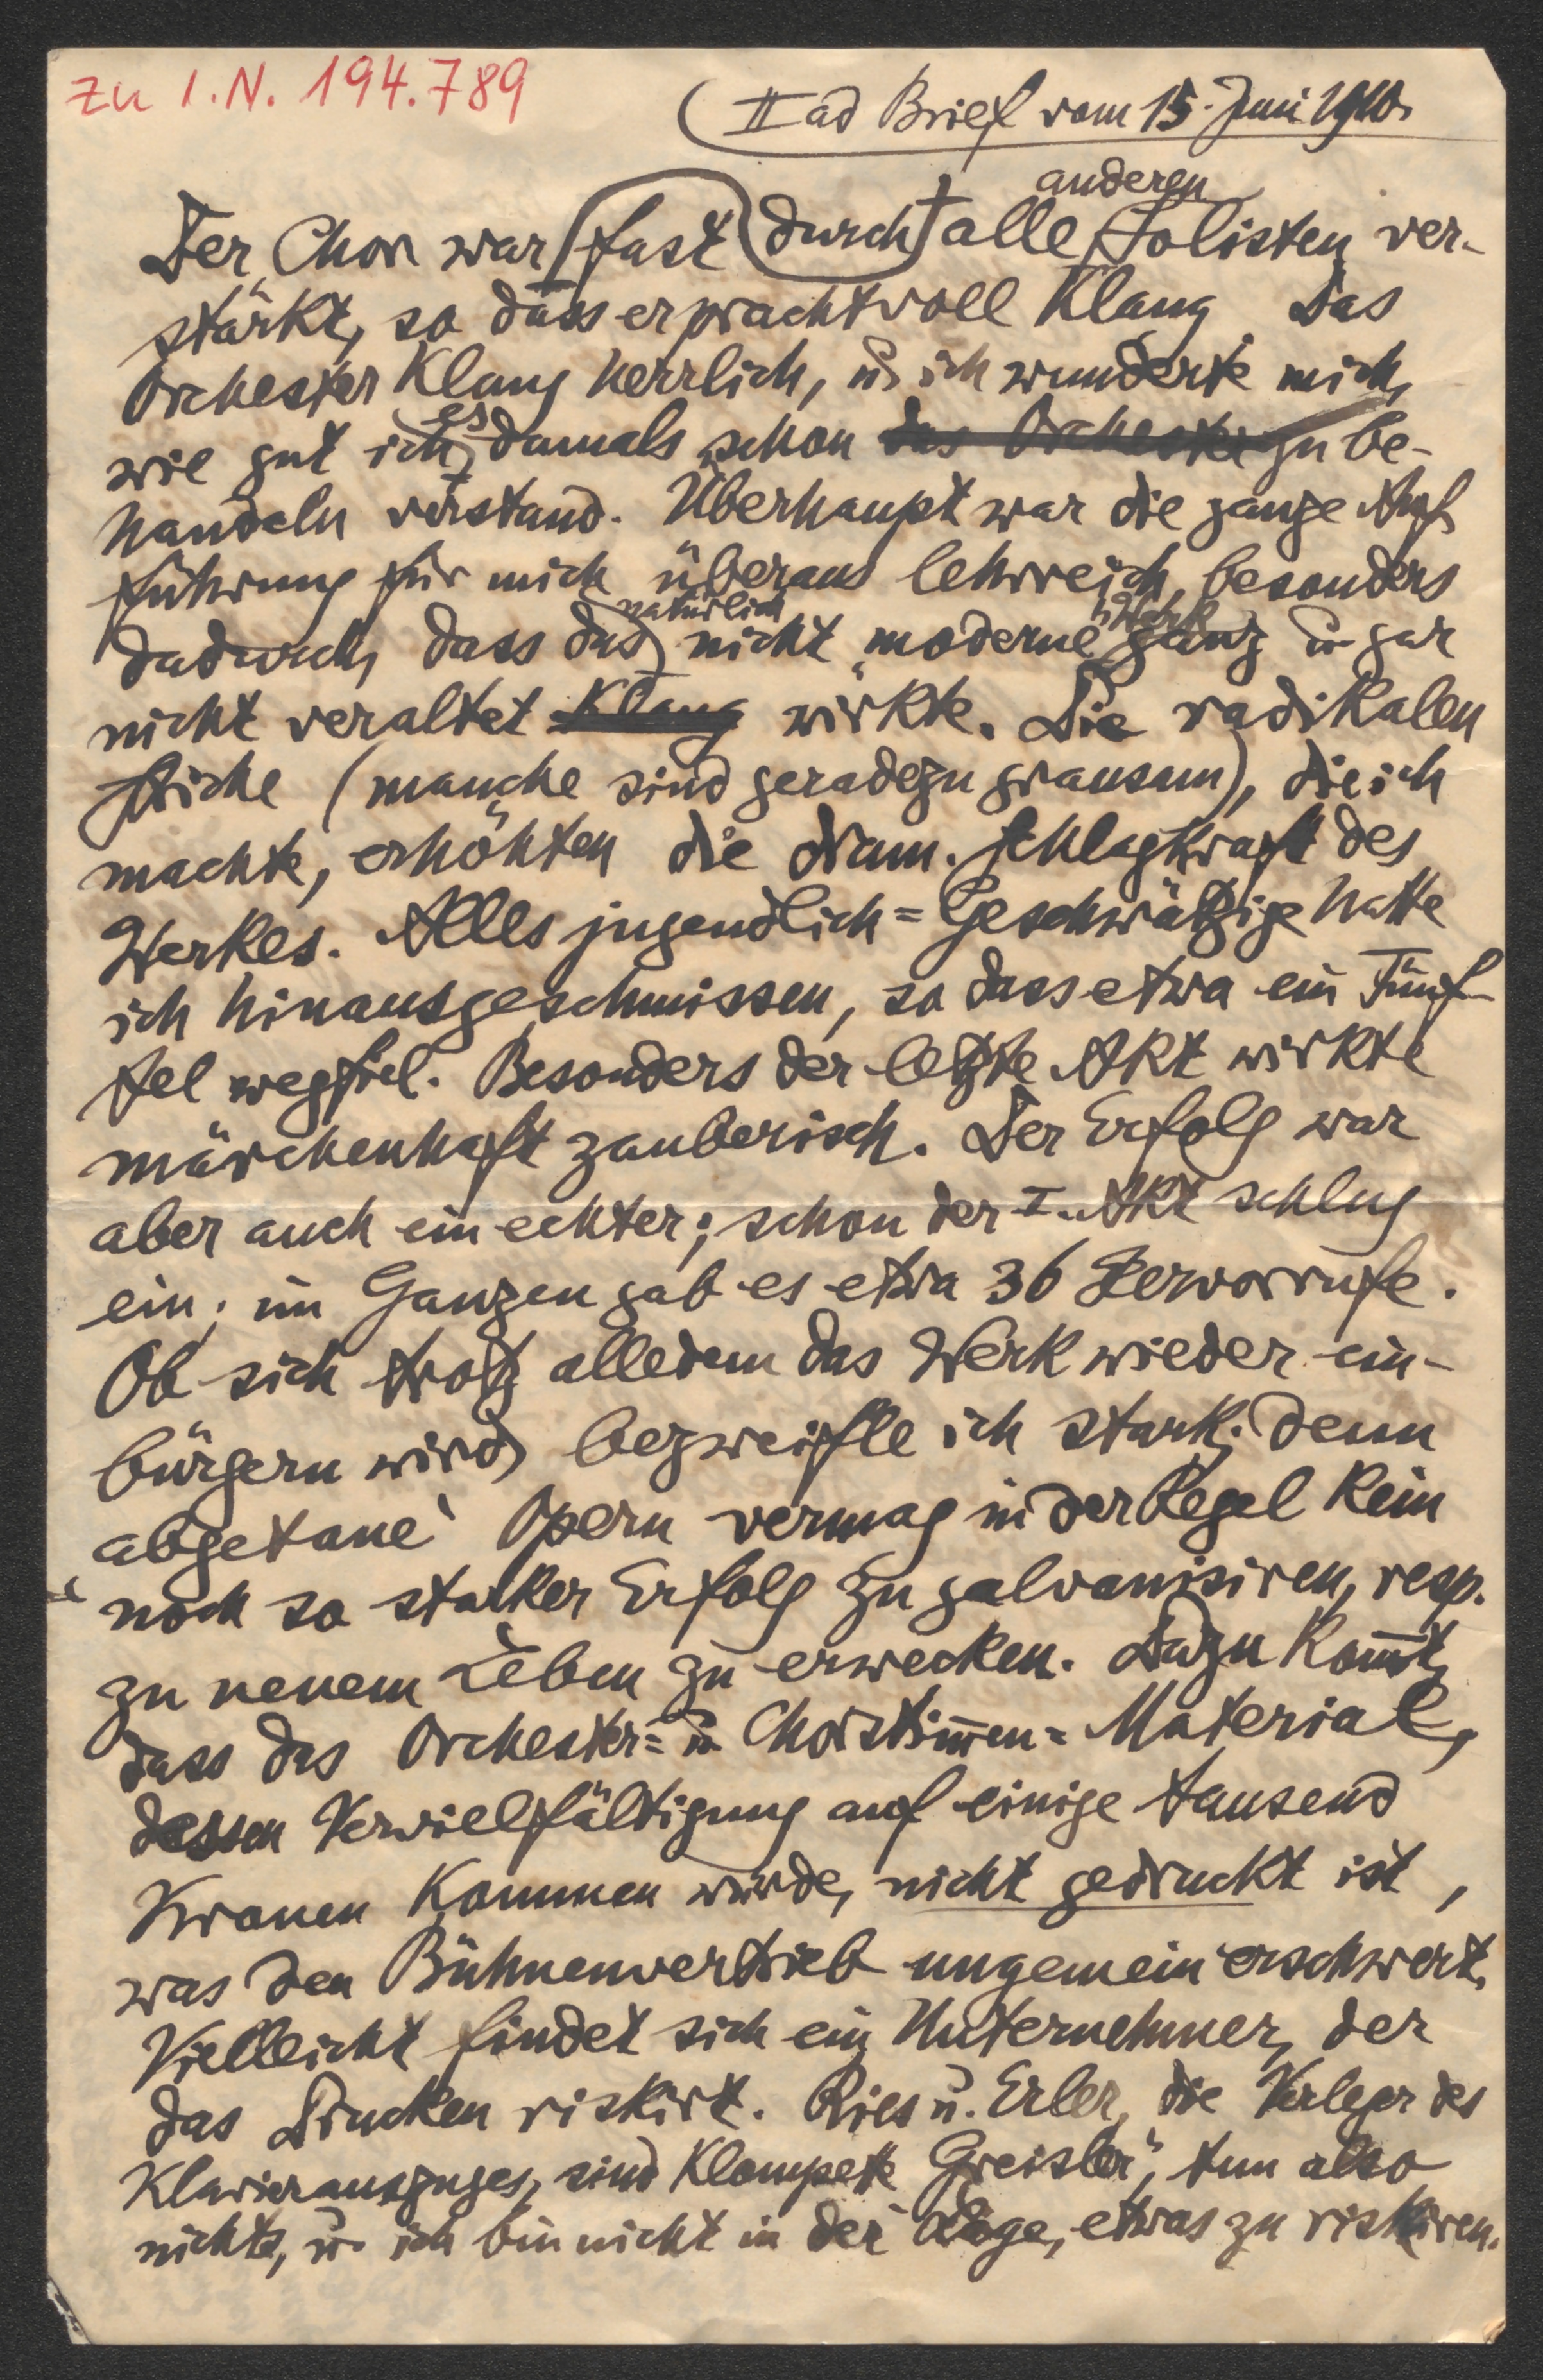 zu I.N. 194.789
II ad Brief vom 15. Juni 1910.
Der Chor war fast durch alle anderen Solisten ver-
stärkt, so dass er prachtvoll klang. Das
Orchester klang herrlich, u. ich wunderte mich,
wie gut ich es damals schon das Orchester zu be-
handeln verstand. Überhaupt war die ganze Auf-
führung für mich überaus lehrreich, besonders
dadurch, dass das natürlich nicht „moderne“ Werk ganz u. gar
nicht veraltet klang wirkte. Die radikalen
Striche (manche sind geradezu grausam), die ich
machte, erhöhten die dram. Schlagkraft des
Werkes. Alles jugendlich=Geschwätzige hatte
ich hinausgeschmissen, so dass etwa ein Fünf-
tel wegfiel. Besonders der letzte Akt wirkte
märchenhaft zauberisch. Der Erfolg war
aber auch ein echter; schon der I. Akt schlug
ein; im Ganzen gab es etwa 36 Hervorrufe.
Ob sich trotz alledem das Werk wieder ein-
bürgern wird, bezweifle ich stark; denn
abgetane Opern vermag in der Regel kein
noch so starker Erfolg zu galvanisiren, resp.
zu neuem Leben zu erwecken. Dazu kom̅t,
dass das Orchester= u. Chorstim̅en=Material,
dessen Vervielfältigung auf einige tausend
Kronen kommen würde, nicht gedruckt ist,
was den Bühnenvertrieb ungemein erschwert.
Vielleicht findet sich ein Unternehmer, der
das Drucken riskirt. Ries u. Erler, die Verleger des
Klavierauszuges, sind komplette „Greisler“, tun also
nichts, u. ich bin nicht in der Lage, etwas zu riskiren.